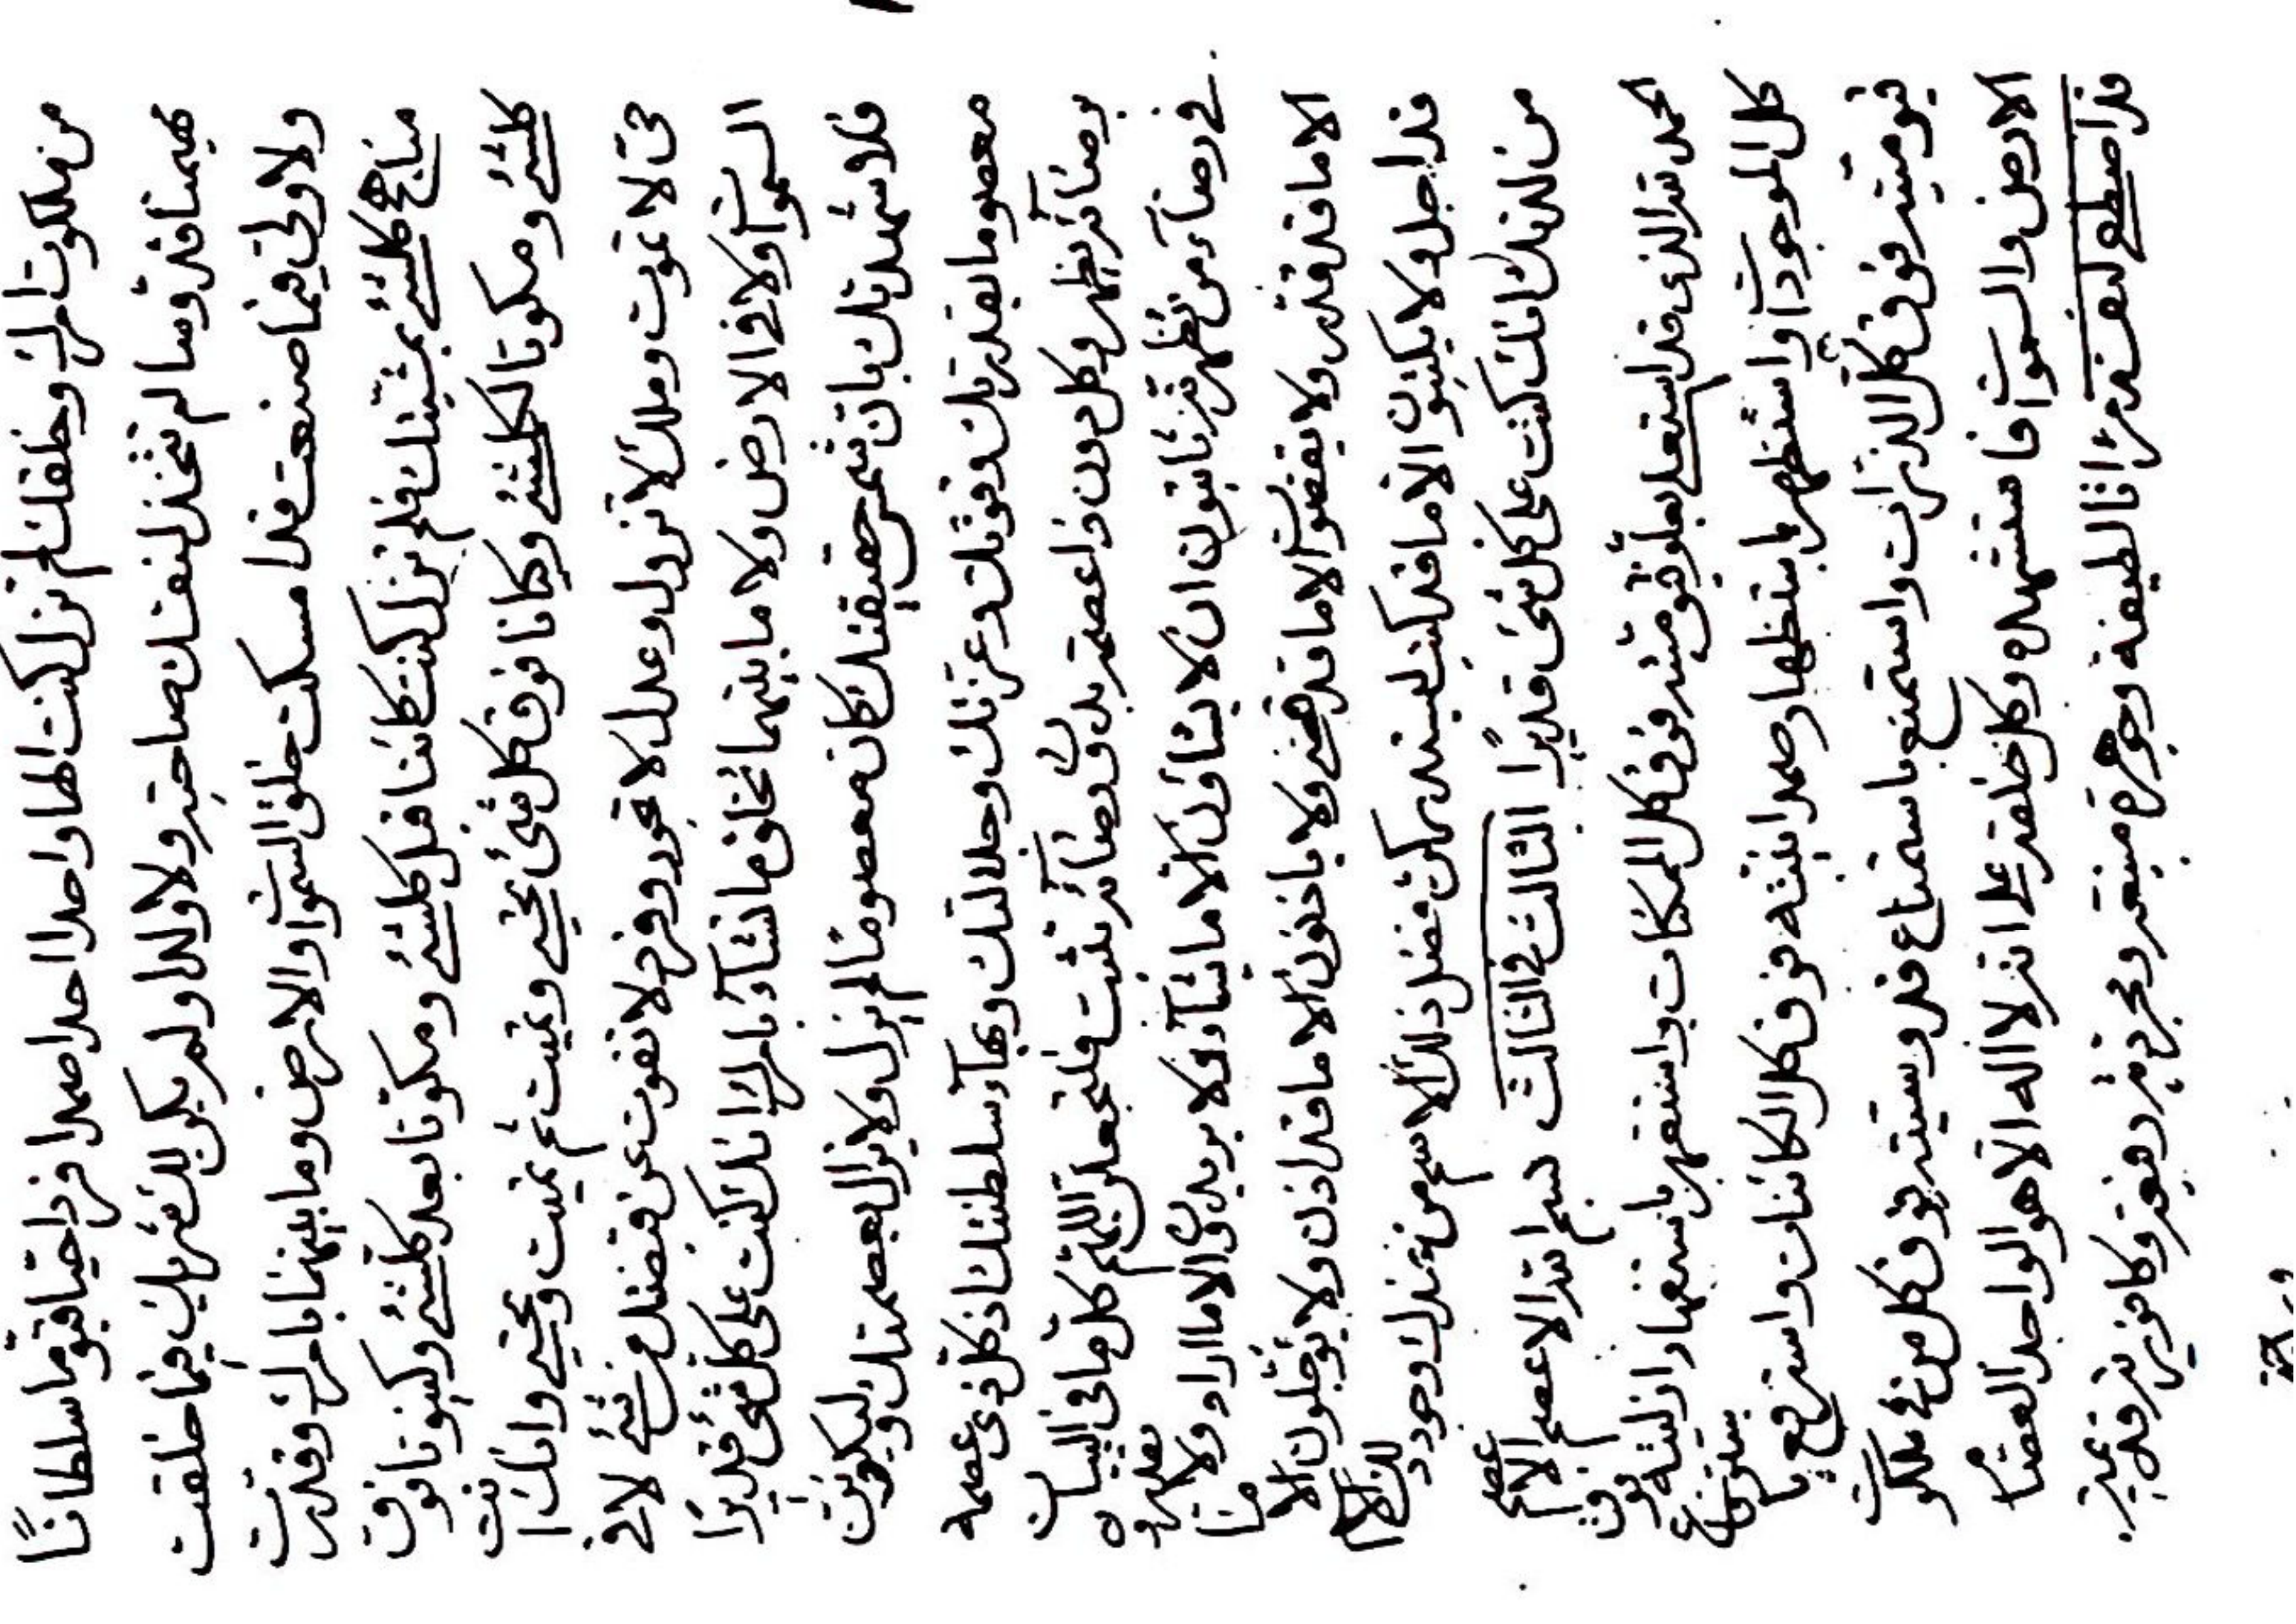 من ملكوت امرك وخلقك لم تزل كنت الها واحدا احدا صمدا فردا حيا قيوما سلطانا
مهيمنا قدوسا لم تتخذ لنفسك صاحبة ولا ولدا ولم يكن لك شريك فيما خلقت
ولا ولي فيما صنعت قد امسكت خلق السموات والارض وما بينهما بامرك وقدرت
مناهج كلشئ بمشيتك فلم تزل كنت كائنا قبل كلشئ ومكونا بعد كلشئ وكينونا فوق
كلشئ ومكونا لكلشئ وكانا فوق كل شئ تحيي وتميت ثم تميت وتحيي وانك انت
حي لا تموت وملك لا تزول وعدل لا تجور وفرد لا تفوت عن قبضتك من شئ لا في
السموات ولا في الارض ولا ما بينهما تخلق ما تشاء بامرك انك كنت على كل شئ قديرا
فلاشهدنك بان حقيقتك كانه معصوما لم يزل ولا يزال بعصمتك وليكونن
معصوما بقدرتك وقوتك وعزتك وجلالتك وبهاء سلطنتك اذ كل ذي عصمة
برضائه يظهر وكل دون ذا عصمة بدون رضائه تثبت فلتجعلن اللهم كل ما في البيان
في رضاء من تظهرنه ثابتون ان لا يشاؤن الا ما يشاء ولا يريدون الا ما اراد ولا يقدرون
الا ما قد قدر ولا يقضون الا ما قد قضى ولا ياذنون الا ما قد اذن ولا يؤجلون الا ما
قد اجل ولا يكتبون الا ما قد كتب فضل ذلك الاسم من عندك وجود ذلك الاسم
من لدنك انك كنت على كل شئ قديرا الثالث في الثالث بسم الله الاعصم الاعصم
الحمد لله الذي قد استعلى بعلو قيوميته فوق كل الممكنات واستقهر باستقهار ازليته فوق
كل الموجودات واستظهر باستظهار صمدانيته فوق كل الكائنات واسترفع باسترفاع
قيوميته فوق كل الذرات واستمنع باستمناع قدوسيته فوق كل من في ملكوت
الارض والسموات فاستشهده وكل خلقه على انه لا اله الا هو الواحد العصام
قد اصطفى لنفسه مرآتا لطيفة وجوهرة منيعة ومجردة رفيعة وكافورية قديمة